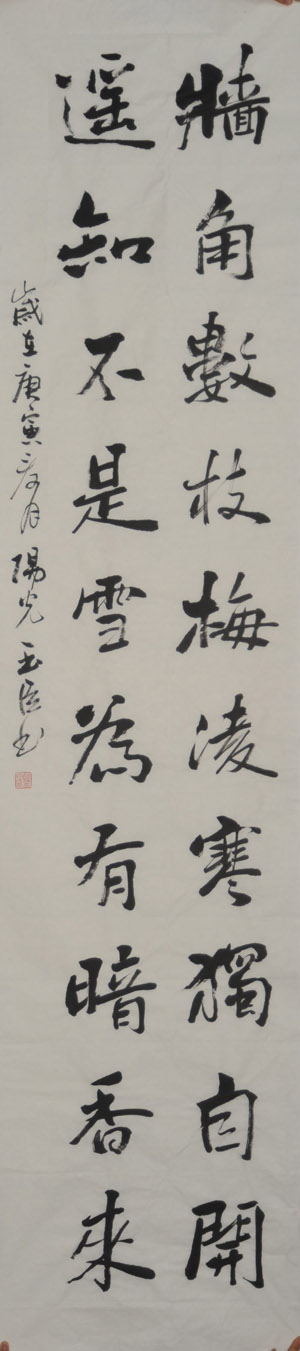 牆角數枝梅凌寒獨自開
遥知不是雪為有暗香來
歲在庚寅冬月 陽光 玉臣书